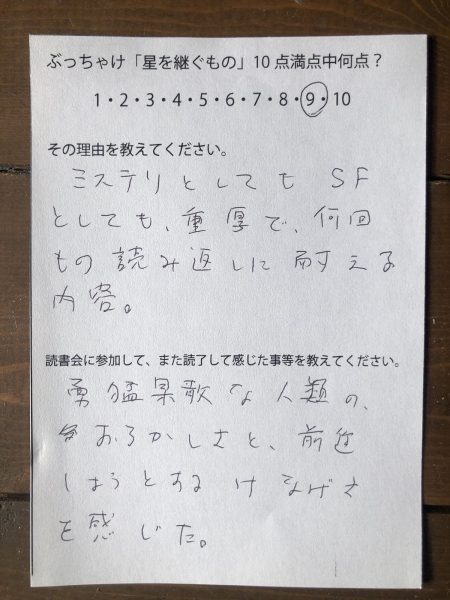 ぶっちゃけ「星を継ぐもの」10 点満点中何点？
1・2・3・4・5・6・7・8・9・10
その理由を教えてください。
ミステリとしても SF
としても、重厚で、何回
もの読み返しに耐える
内容。
読書会に参加して、また読了して感じた事等を教えてください。
勇猛果敢な人類の、
おろかしさと、前進
しようとする けなげさ
を感じた。